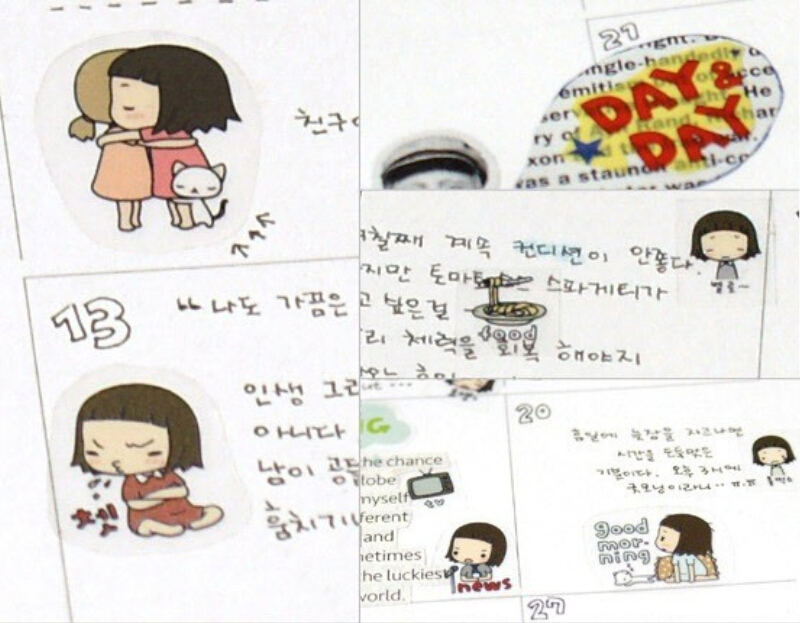 친구
13
“나도 가끔은
인생 그리
아니다
남이 공들
훔치기나
흐잇
27
ingle-handedly
DAY &
DAY
as a staunch anti-co
째 계속 컨디션이 안좋다.
지만 토마토소스 스파게티가
고 싶은걸
food
리 체력을 회복 해야지
별로~
NG
he chance
lobe
myself
ferent
and
etimes
he luckiest
world.
tv
news
20
휴일에 늦잠을 자고나면
시간을 도둑맞은
기분이다. 오후 3시에
굿모닝이라니.. ㅠ.ㅠ
good
mor-
ning
27